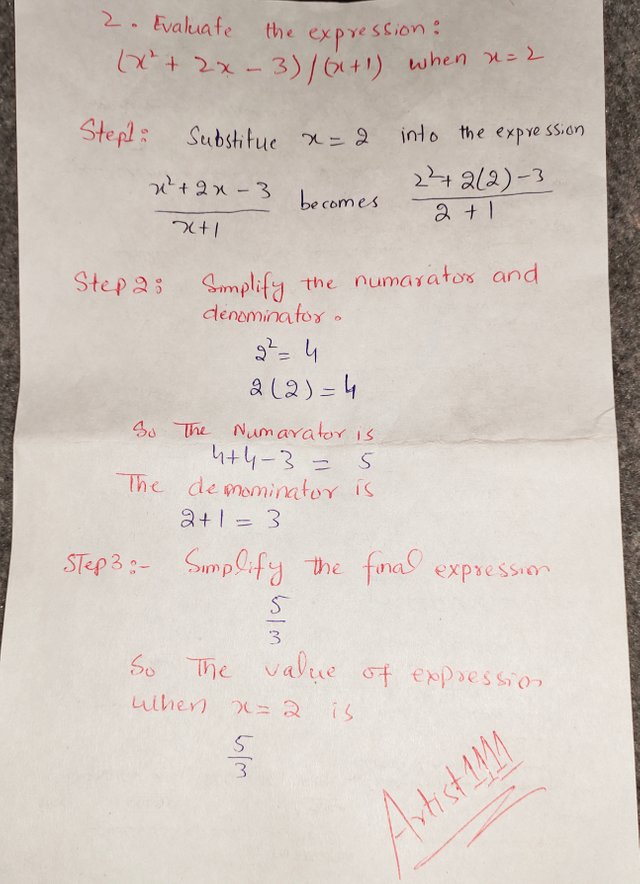 2. Evaluate the expression:
(x² + 2x - 3)/(x+1) when x=2
Step1: Substitue x = 2 into the expression
x² + 2x - 3 / x+1 becomes 2²+ 2(2)-3 / 2 + 1
Step 2: Simplify the numarator and
denominator.
2² = 4
2(2) = 4
So The Numarator is
4+4-3 = 5
The demominator is
2+1 = 3
STep3:- Simplify The final expression
5
3
So The value of expression
when x=2 is
5
3
Artist1111